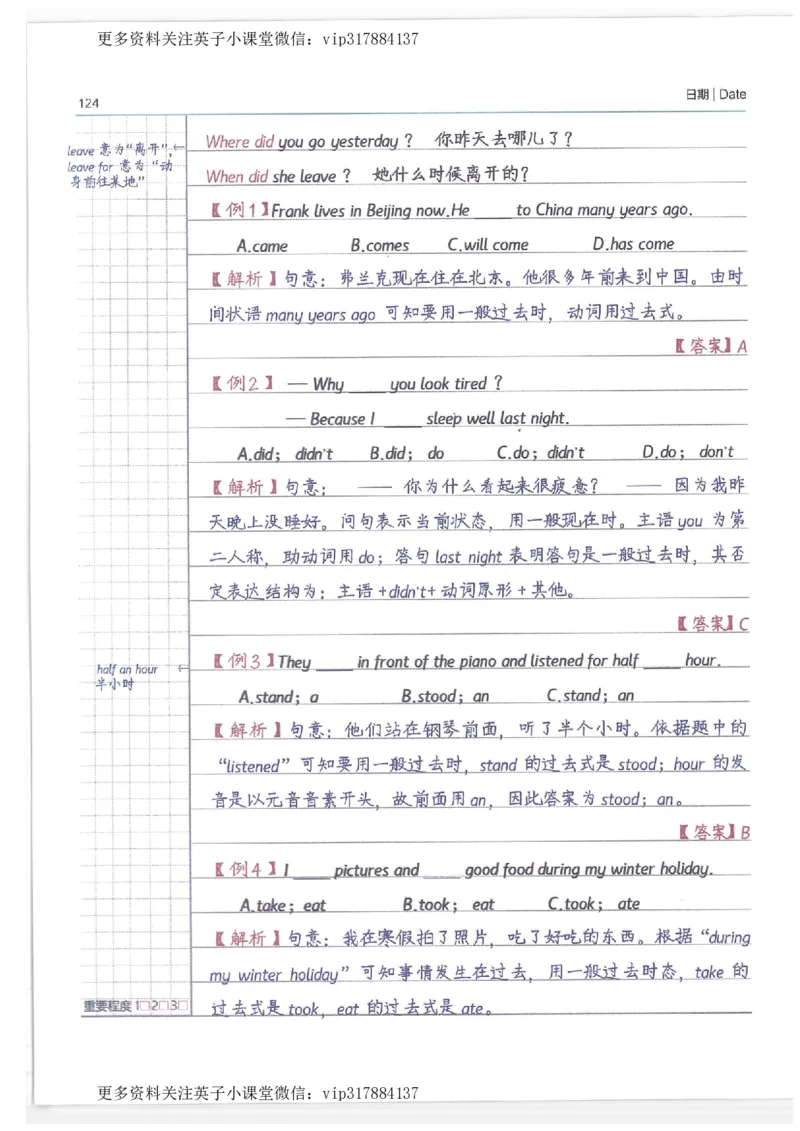 更多资料关注英子小课堂微信：vip317884137
124
日期 | Date
leave 意为“离开”，
leave for 意为“动
身前往某地”
Where did you go yesterday？ 你昨天去哪儿了？
When did she leave？ 她什么时候离开的？
【例1】Frank lives in Beijing now.He ____ to China many years ago.
A.came B.comes C.will come D.has come
【解析】句意：弗兰克现在住在北京。他很多年前来到中国。由时
间状语 many years ago 可知要用一般过去时，动词用过去式。
【答案】A
【例2】 — Why ____ you look tired？
— Because I ____ sleep well last night.
A.did； didn't B.did； do C.do；didn't D.do； don't
【解析】句意： —— 你为什么看起来很疲惫？ —— 因为我昨
天晚上没睡好。问句表示当前状态，用一般现在时。主语 you 为第
二人称，助动词用 do；答句 last night 表明答句是一般过去时，其否
定表达结构为：主语 +didn't+ 动词原形 + 其他。
【答案】C
half an hour
半小时
【例3】They ____ in front of the piano and listened for half ____ hour.
A.stand；a B.stood；an C.stand；an
【解析】句意：他们站在钢琴前面，听了半个小时。依据题中的
“listened”可知要用一般过去时，stand 的过去式是 stood；hour 的发
音是以元音音素开头，故前面用 an，因此答案为 stood；an。
【答案】B
【例4】I ____ pictures and ____ good food during my winter holiday.
A.take；eat B.took； eat C.took； ate
【解析】句意：我在寒假拍了照片，吃了好吃的东西。根据“during
my winter holiday”可知事情发生在过去，用一般过去时态，take 的
过去式是 took，eat 的过去式是 ate。
重要程度 1□2□3□
更多资料关注英子小课堂微信：vip317884137